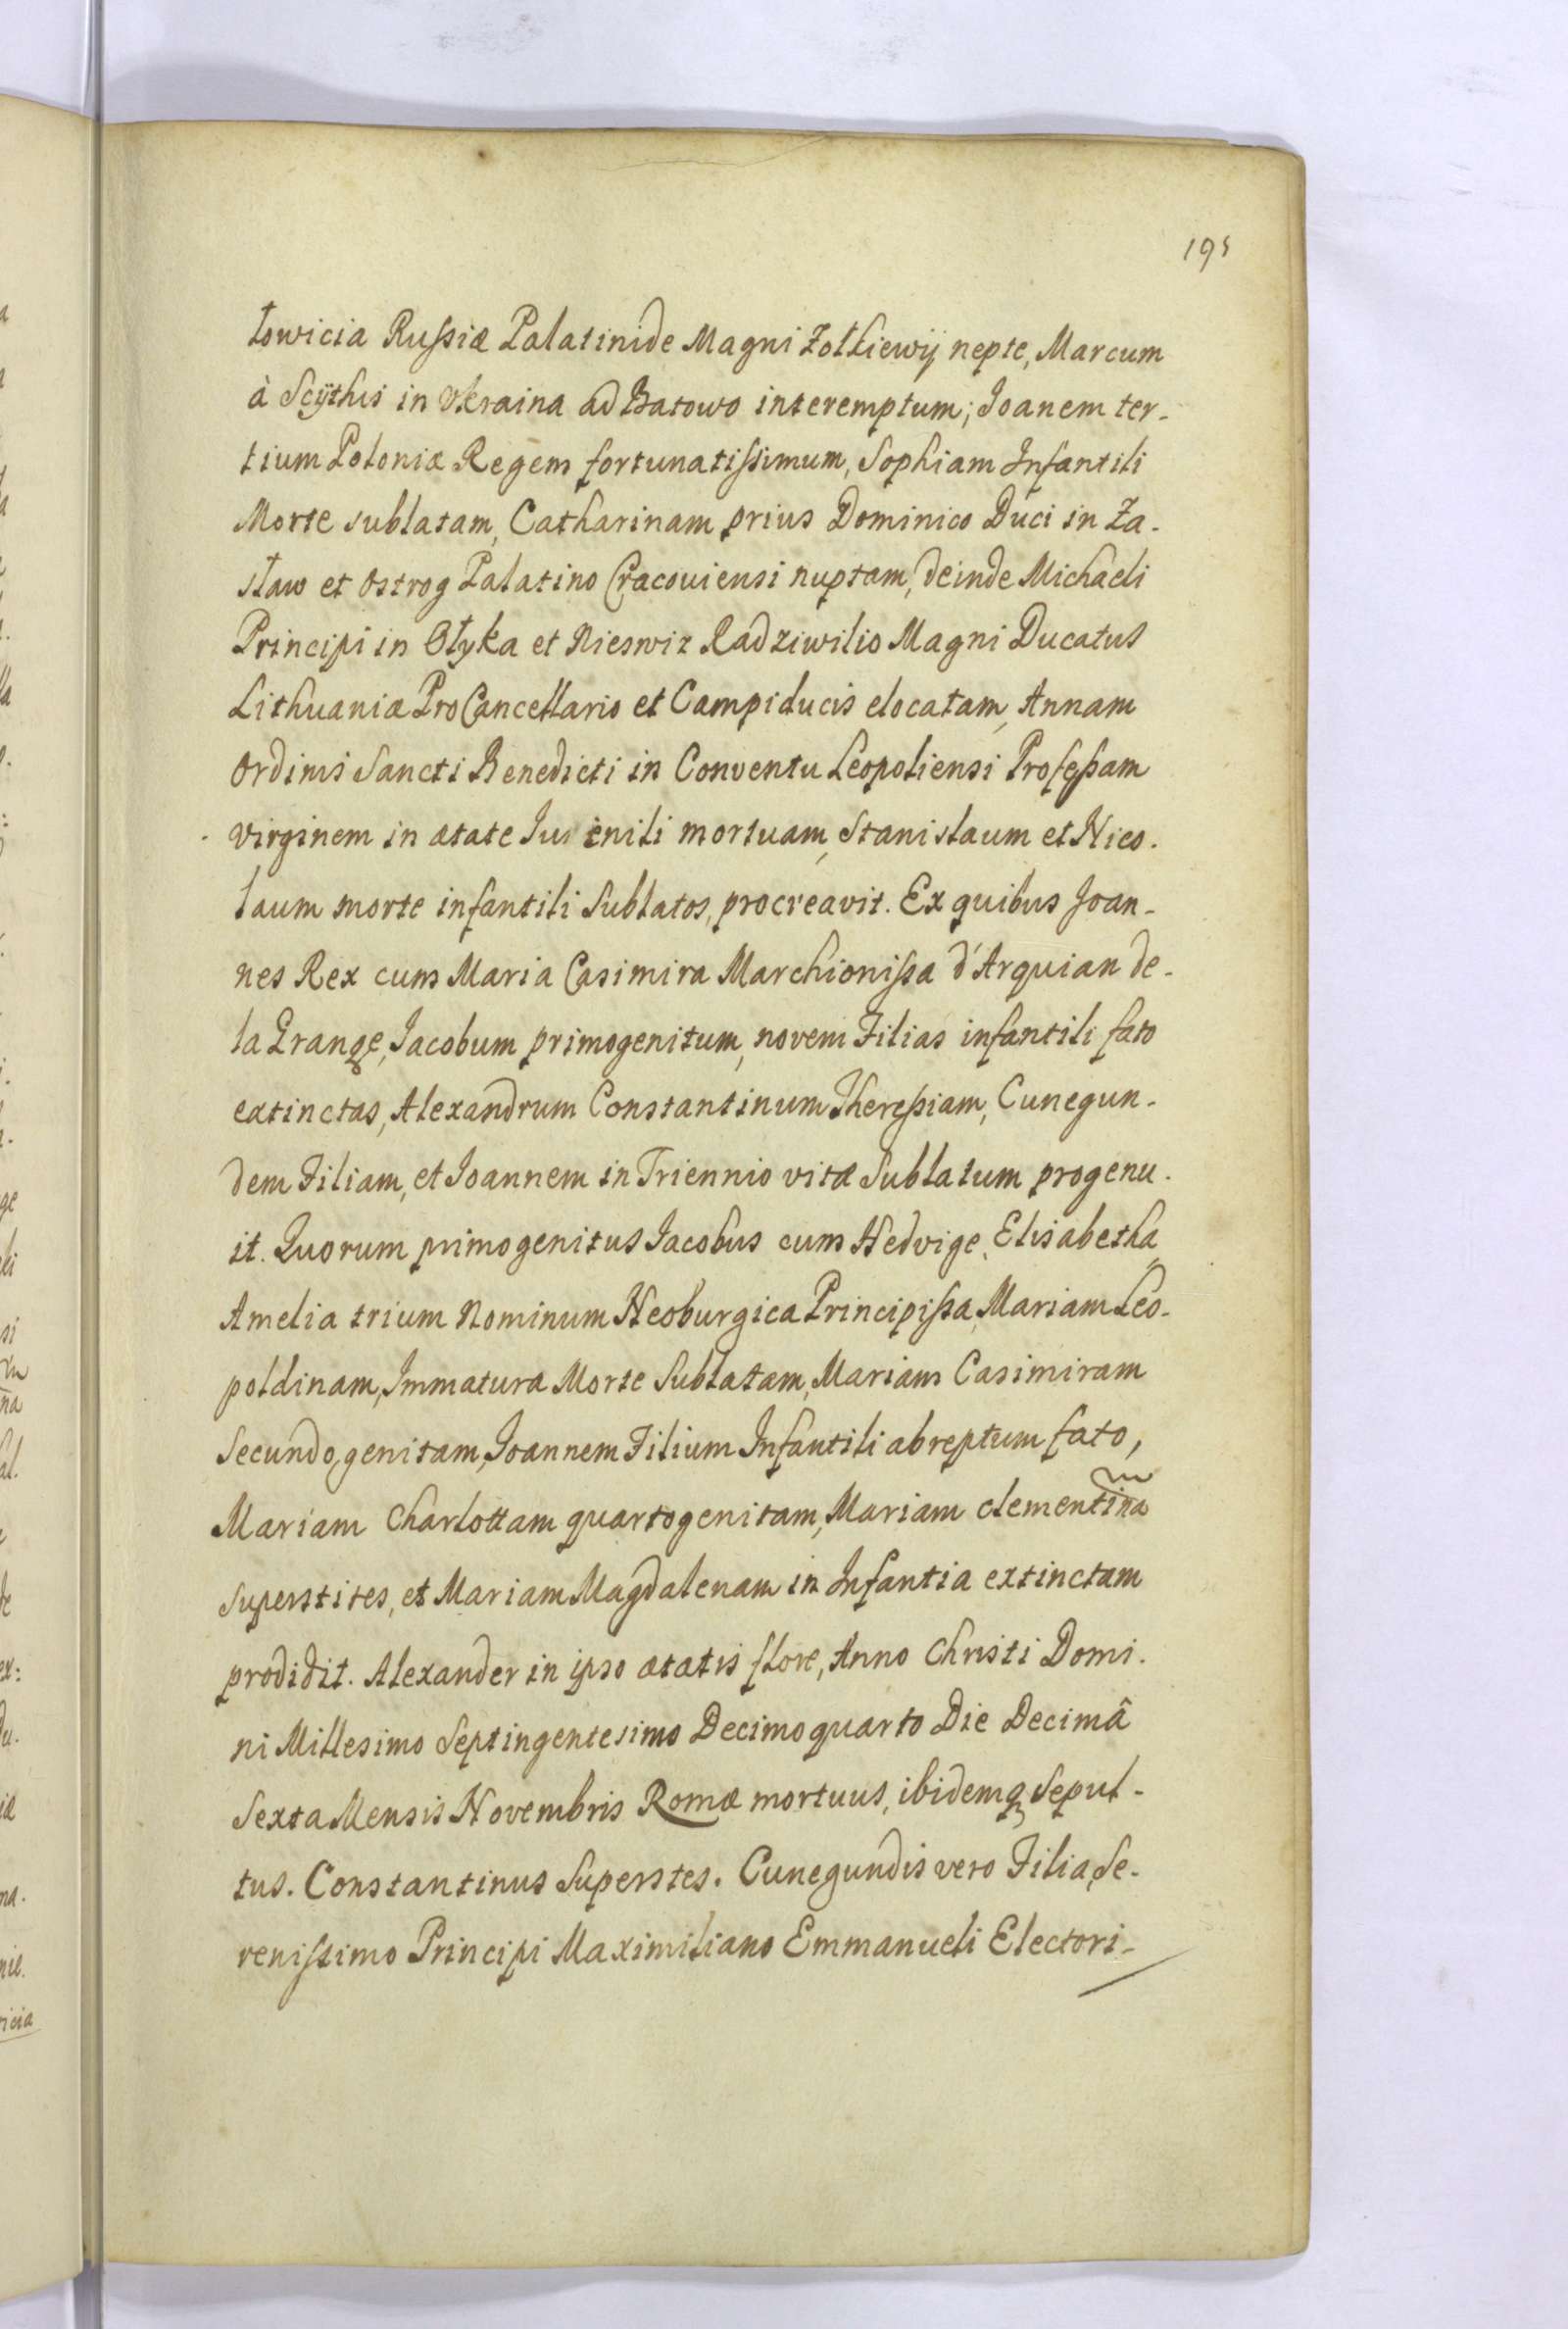 195
łowicia Russiæ Palatinide Magni Zołkiewij nepte, Marcum
à Scÿthis in Vkraina ad Batowo interemptum; Joanem ter-
tium Poloniæ Regem fortunatissimum, Sophiam Infantili
Morte sublatam, Catharinam prius Dominico Duci in Za-
sław et Ostrog Palatino Cracouiensi nuptam, deinde Michaeli
Principi in Ołyka et Nieswiz Radziwilio Magni Ducatus
Lithuaniæ ProCancellario et Campiducis elocatam, Annam
Ordinis Sancti Benedicti in Conventu Leopoliensi Professam
virginem in ætate Iuvenili mortuam, Stanislaum et Nico-
laum morte infantili Sublatos, procreavit. Ex quibus Joan-
nes Rex cum Maria Casimira Marchionissa d'Arquian de-
la Grange, Jacobum primogenitum, novem Filias infantili fato
extinctas, Alexandrum Constantinum Theressiam, Cunegun-
dem Filiam, et Joannem in Triennio vitæ Sublatum progenu-
it. Quorum primogenitus Jacobus cum Hedvige, Elisabetha,
Amelia trium Nominum Neoburgica Principissa, Mariam Leo-
poldinam, Immatura Morte Sublatam, Mariam Casimiram
Secundo genitam, Joannem Filium Infantili abreptum fato,
Mariam Charlottam quartogenitam, Mariam clementina͠
superstites, et Mariam Magdalenam in Infantia extinctam
prodidit. Alexander in ipso ætatis flore, Anno Christi Domi-
ni Millesimo Septingentesimo Decimoquarto Die Decimâ
Sexta Mensis Novembris Romæ mortuus, ibidemq; Sepul-
tus. Constantinus Superstes. Cunegundis vero Filia, Se-
renissimo Principi Maximiliano Emmanueli Electori-